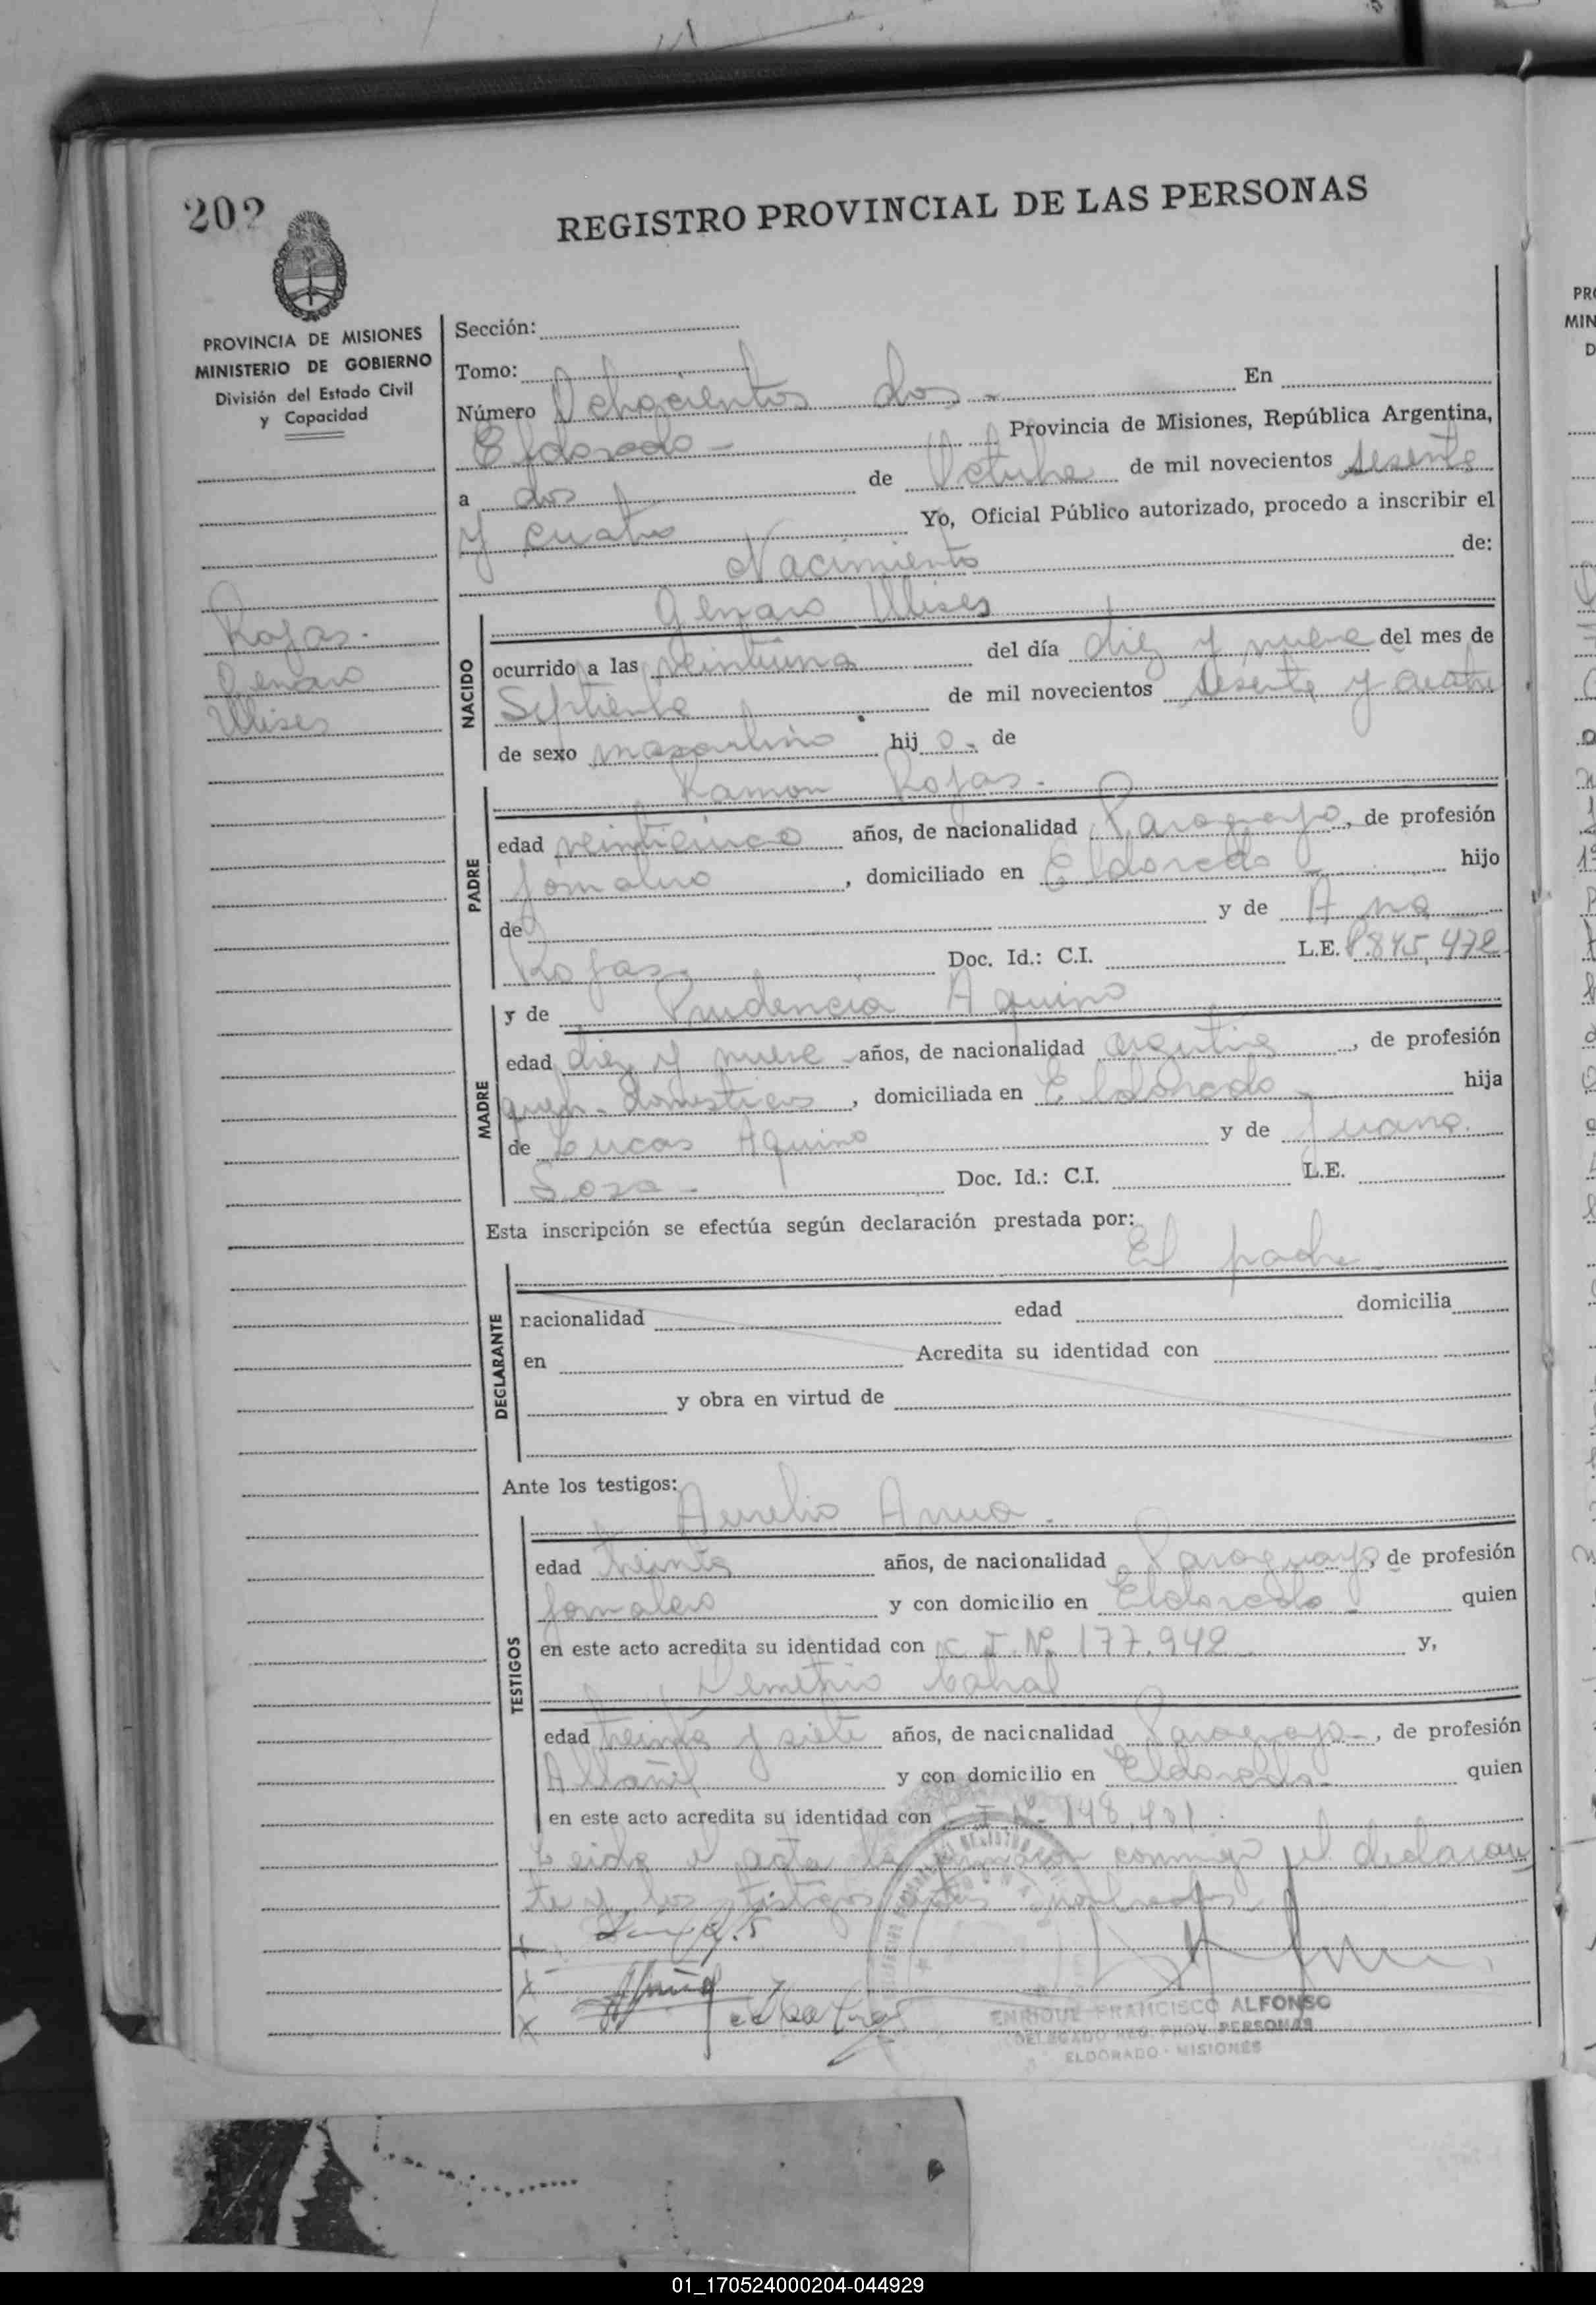 202
REGISTRO PROVINCIAL DE LAS PERSONAS
PROVINCIA DE MISIONES
MINISTERIO DE GOBIERNO
División del Estado Civil
y Capacidad
Rojas.
Genaro
Ulises
Sección:
Tomo:
Número Ochocientos dos - En
Eldorado - Provincia de Misiones, República Argentina,
a dos de Octubre de mil novecientos sesenta
y cuatro Yo, Oficial Público autorizado, procedo a inscribir el
Nacimiento de:
Genaro Ulises
NACIDO
ocurrido a las veintiuna del día diez y nueve del mes de
Septiembre de mil novecientos sesenta y cuatro
de sexo masculino hijo. de
Ramon Rojas.
PADRE
edad veinticinco años, de nacionalidad Paraguayo, de profesión
jornalero, domiciliado en Eldorado hijo
de y de Ana
Rojas. Doc. Id.: C.I. L.E. 845,472
y de Prudencia Aquino
MADRE
edad diez y nueve años, de nacionalidad argentina, de profesión
domesticos, domiciliada en Eldorado hija
de Lucas Aquino y de Juana
Sosa - Doc. Id.: C.I. L.E.
Esta inscripción se efectúa según declaración prestada por:
El padre
DECLARANTE
nacionalidad edad domicilia
en Acredita su identidad con
y obra en virtud de
Ante los testigos:
Aurelio
TESTIGOS
edad treinta años, de nacionalidad Paraguayo, de profesión
jornalero y con domicilio en Eldorado quien
en este acto acredita su identidad con C.I. Nº 177.942 y,
Demetrio Cabral
edad treinta y siete años, de nacionalidad Paraguayo, de profesión
Albañil y con domicilio en Eldorado quien
en este acto acredita su identidad con I. Nº 148.431
Leida el acta la firman conmigo el declaran
te y los testigos nombrados
ENRIQUE FRANCISCO ALFONSO
DELEGADO REG. PROV. PERSONAS
ELDORADO - MISIONES
01_170524000204-044929